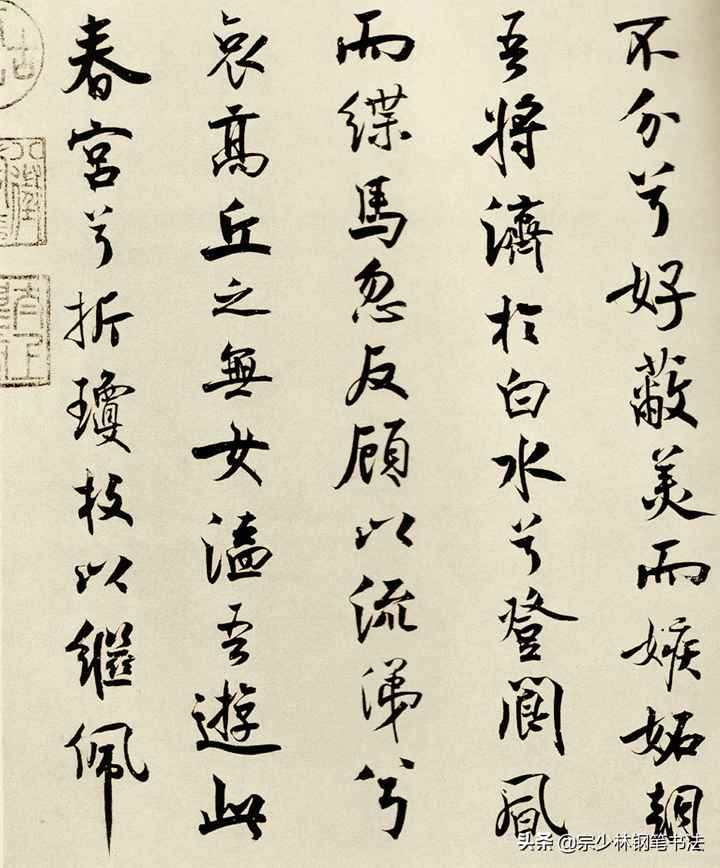 不分兮好蔽美而嫉妬朝
吾將濟於白水兮登閬風
而緤馬忽反顧以流涕兮
哀高丘之無女溘吾遊此
春宮兮折瓊枝以繼佩
头条 @宗少林钢笔书法